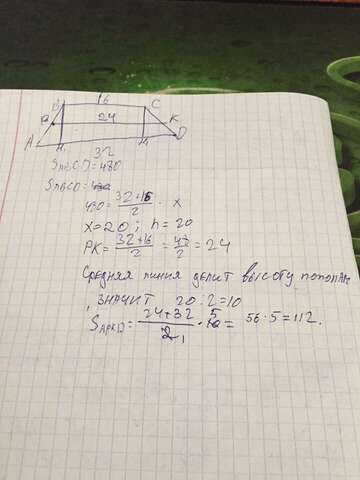 16
B C
P 24 K
A H H D
32
SABCD=480
SABCD=
480=32+16/2 · x
x=20; h=20
PK=32+16/2=48/2=24
Средняя линия делит высоту пополам,
значит 20:2=10
SAPKD=24+32/2 · 10 5 = 56·5=112.
1